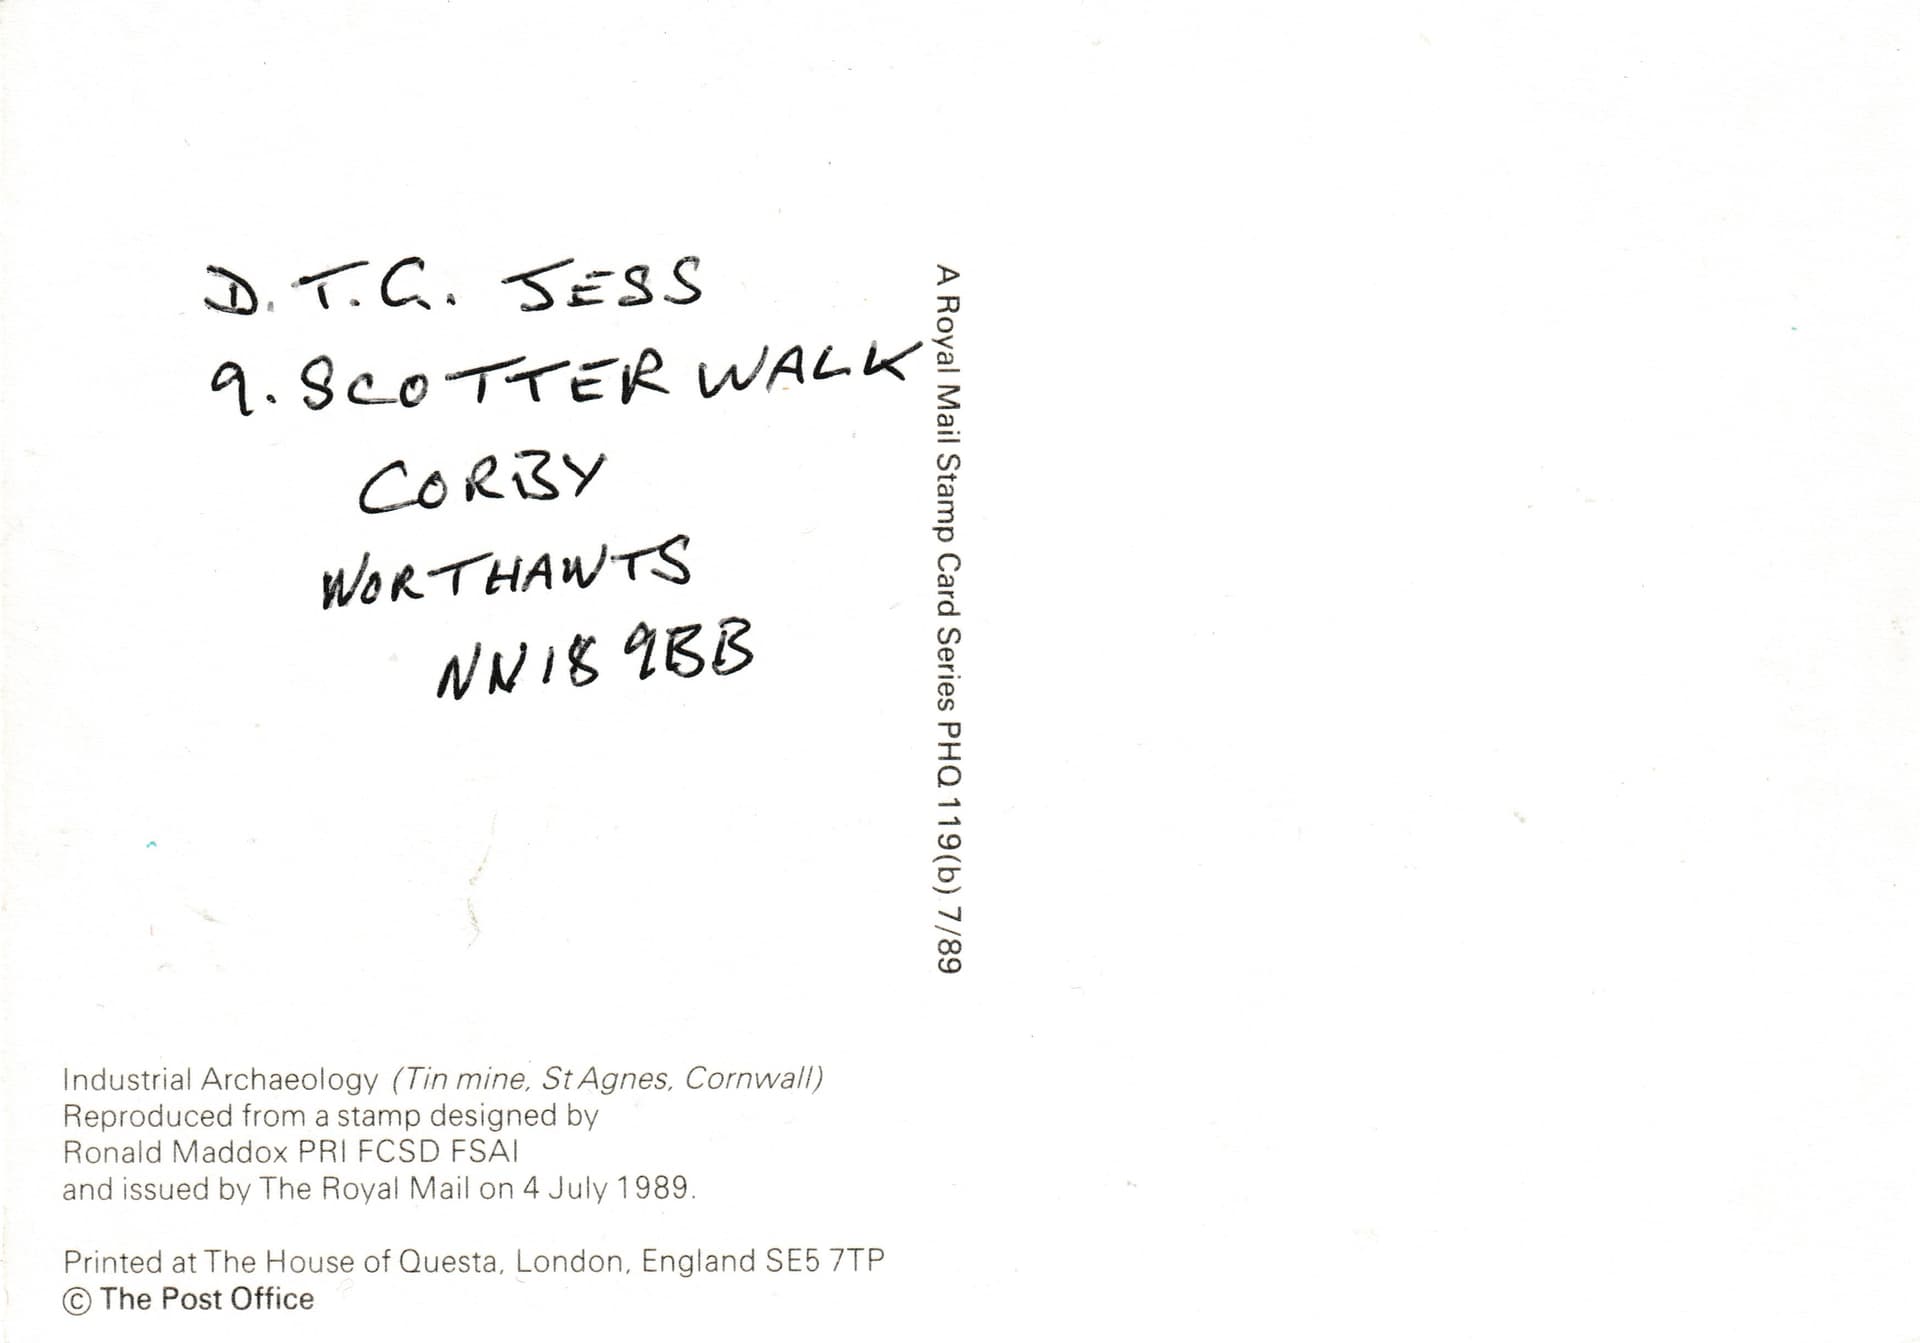 D. T. G. JESS
9. SCOTTER WALK
CORBY
NORTHANTS
NN18 9BB
A Royal Mail Stamp Card Series PHQ 119(b) 7/89
Industrial Archaeology (Tin mine, St Agnes, Cornwall)
Reproduced from a stamp designed by
Ronald Maddox PRI FCSD FSAI
and issued by The Royal Mail on 4 July 1989.
Printed at The House of Questa, London, England SE5 7TP
© The Post Office